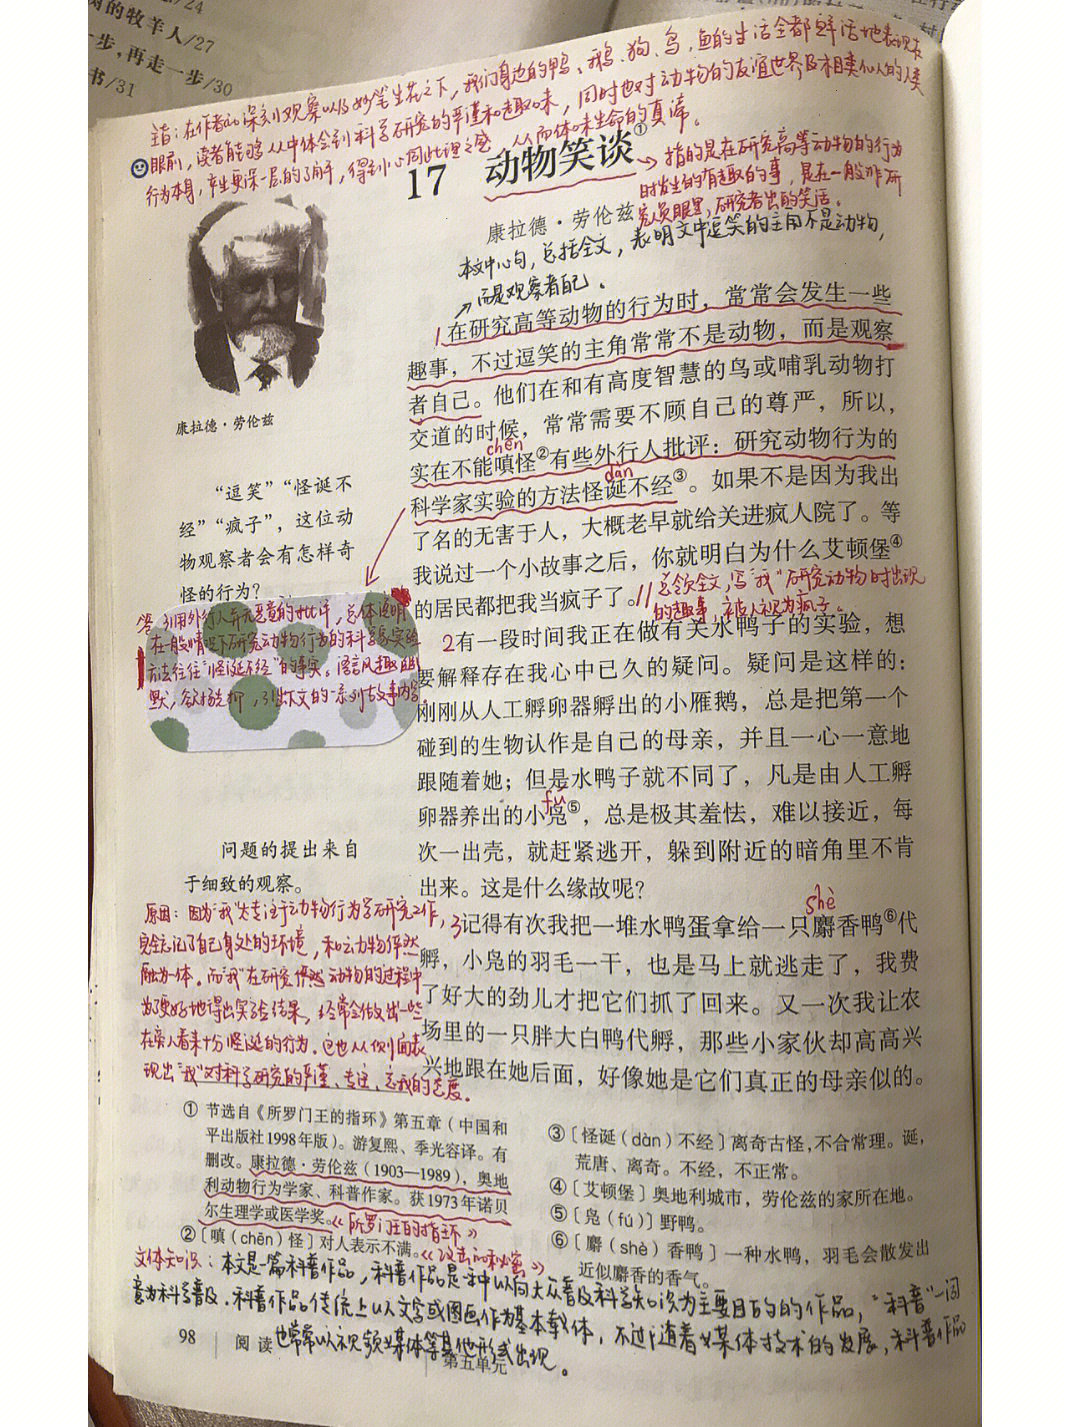 /24
的牧羊人/27
步，再走一步/30
书/31
主旨：在作者的深刻观察以及妙笔生花之下，我们身边的鸭、鹅、狗、鸟、鱼的生活全都鲜活地表现在
眼前，读者能够从中体会到科学研究的严谨和趣味，同时也对动物的友谊世界及相类似的人类
行为本身，产生更深一层的了解，得到心同此理之感，从而体味生命的真谛。
17 动物笑谈①
指的是在研究高等动物的行为
时发生的有趣的事，是在一般非研
究人员眼里，研究者出的笑话。
康拉德·劳伦兹
本文中心句，总括全文，表明文中逗笑的主角不是动物，
而是观察者自己。
康拉德·劳伦兹
1在研究高等动物的行为时，常常会发生一些
趣事，不过逗笑的主角常常不是动物，而是观察
者自己。他们在和有高度智慧的鸟或哺乳动物打
交道的时候，常常需要不顾自己的尊严，所以，
chēn
实在不能嗔怪②有些外行人批评：研究动物行为的
dàn
科学家实验的方法怪诞不经③。如果不是因为我出
了名的无害于人，大概老早就给关进疯人院了。等
我说过一个小故事之后，你就明白为什么艾顿堡④
的居民都把我当疯子了。
总领全文，写“我”研究动物时出现
的趣事，被人视为疯子。
“逗笑”“怪诞不
经”“疯子”，这位动
物观察者会有怎样奇
怪的行为？
答：引用外行人并无恶意的批评，总体说明
在一般情况下研究动物行为的科学家实验
方法往往“怪诞不经”的事实。语言风趣幽
默，欲扬先抑，引出下文的一系列故事内容
2有一段时间我正在做有关水鸭子的实验，想
要解释存在我心中已久的疑问。疑问是这样的：
刚刚从人工孵卵器孵出的小雁鹅，总是把第一个
碰到的生物认作是自己的母亲，并且一心一意地
跟随着她；但是水鸭子就不同了，凡是由人工孵
fú
卵器养出的小凫⑤，总是极其羞怯，难以接近，每
次一出壳，就赶紧逃开，躲到附近的暗角里不肯
出来。这是什么缘故呢？
问题的提出来自
于细致的观察。
原因：因为“我”太专注于动物行为学研究工作，
完全忘记了自己身处的环境，和动物俨然
融为一体。而“我”在研究俨然动物的过程中
为了更好地得出实验结果，经常会做出一些
在旁人看来十分怪诞的行为。这也从侧面表
现出“我”对科学研究的严谨、专注、忘我的态度。
shè
3记得有次我把一堆水鸭蛋拿给一只麝香鸭⑥代
孵，小凫的羽毛一干，也是马上就逃走了，我费
了好大的劲儿才把它们抓了回来。又一次我让农
场里的一只胖大白鸭代孵，那些小家伙却高高兴
兴地跟在她后面，好像她是它们真正的母亲似的。
① 节选自《所罗门王的指环》第五章（中国和
平出版社1998年版）。游复熙、季光容译。有
删改。康拉德·劳伦兹（1903—1989），奥地
利动物行为学家、科普作家。获1973年诺贝
尔生理学或医学奖。《所罗门王的指环》
②〔嗔（chēn）怪〕对人表示不满。《攻击的秘密》
③〔怪诞（dàn）不经〕离奇古怪，不合常理。诞，
荒唐、离奇。不经，不正常。
④〔艾顿堡〕奥地利城市，劳伦兹的家所在地。
⑤〔凫（fú）〕野鸭。
⑥〔麝（shè）香鸭〕一种水鸭，羽毛会散发出
近似麝香的香气。
文体知识：本文是一篇科普作品，科普作品是一种以向大众普及科学知识为主要目的的作品，“科普”一词
意为科学普及。科普作品传统上以文字或图画作为基本载体，不过随着媒体技术的发展，科普作品
也常常以视频媒体等其他形式出现。
98 阅读 第五单元